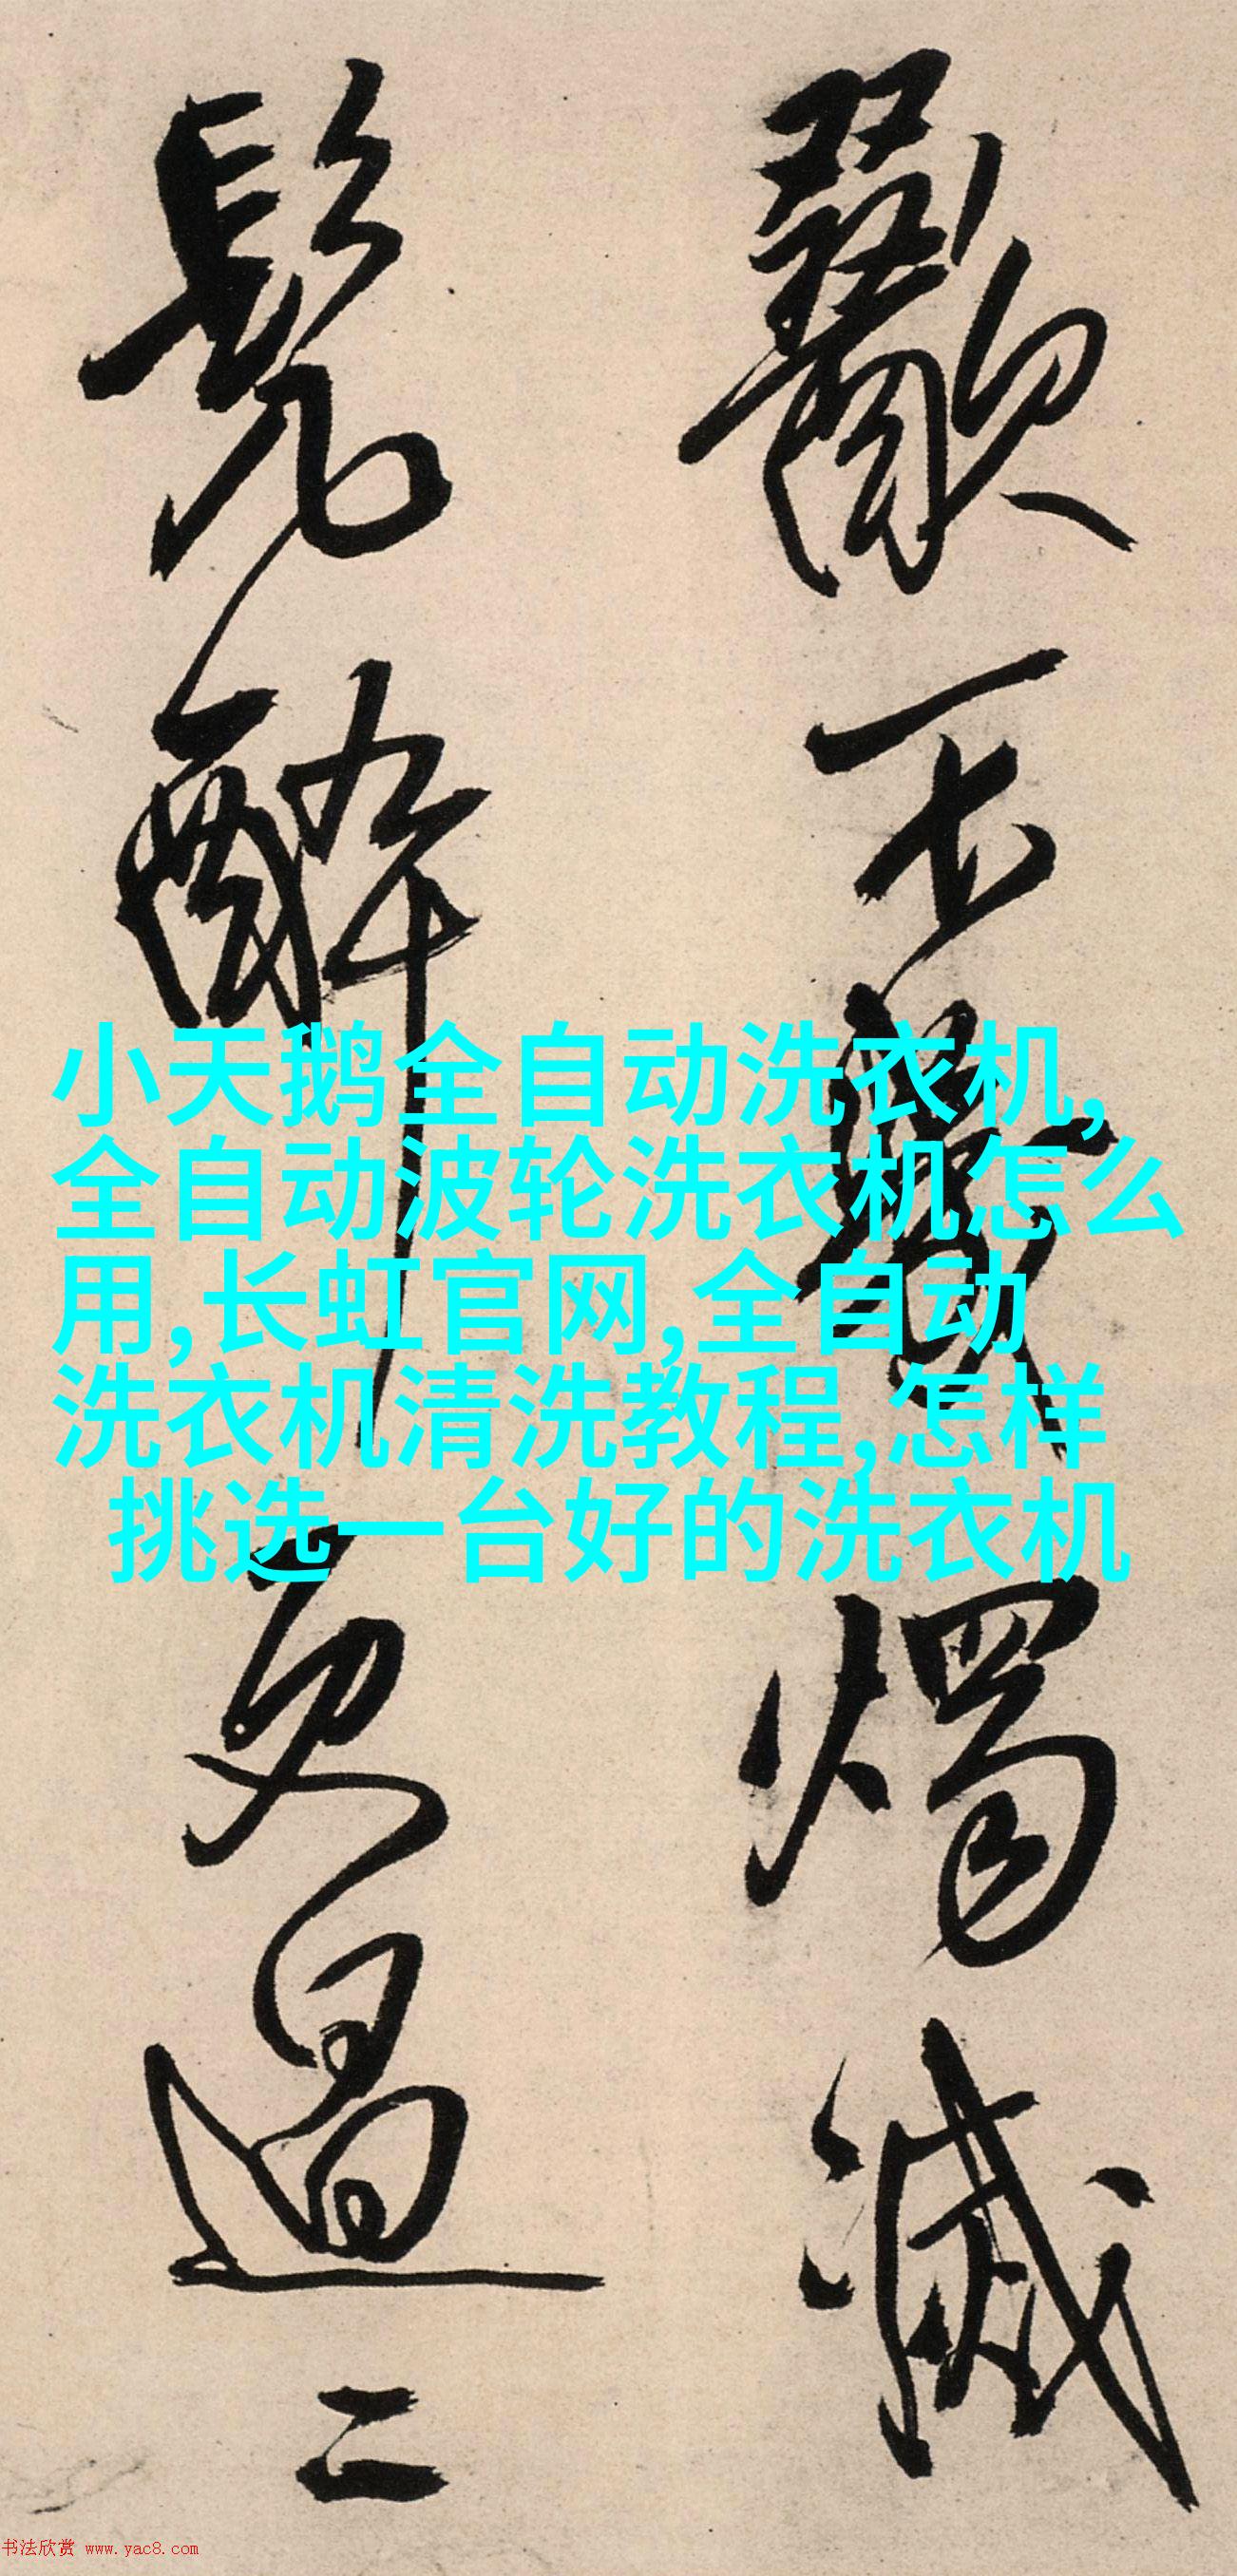 燭滅
醉
更過二
小天鹅全自动洗衣机,
全自动波轮洗衣机怎么
用,长虹官网,全自动
洗衣机清洗教程,怎样
挑选一台好的洗衣机
书法欣赏 www.yac8.com